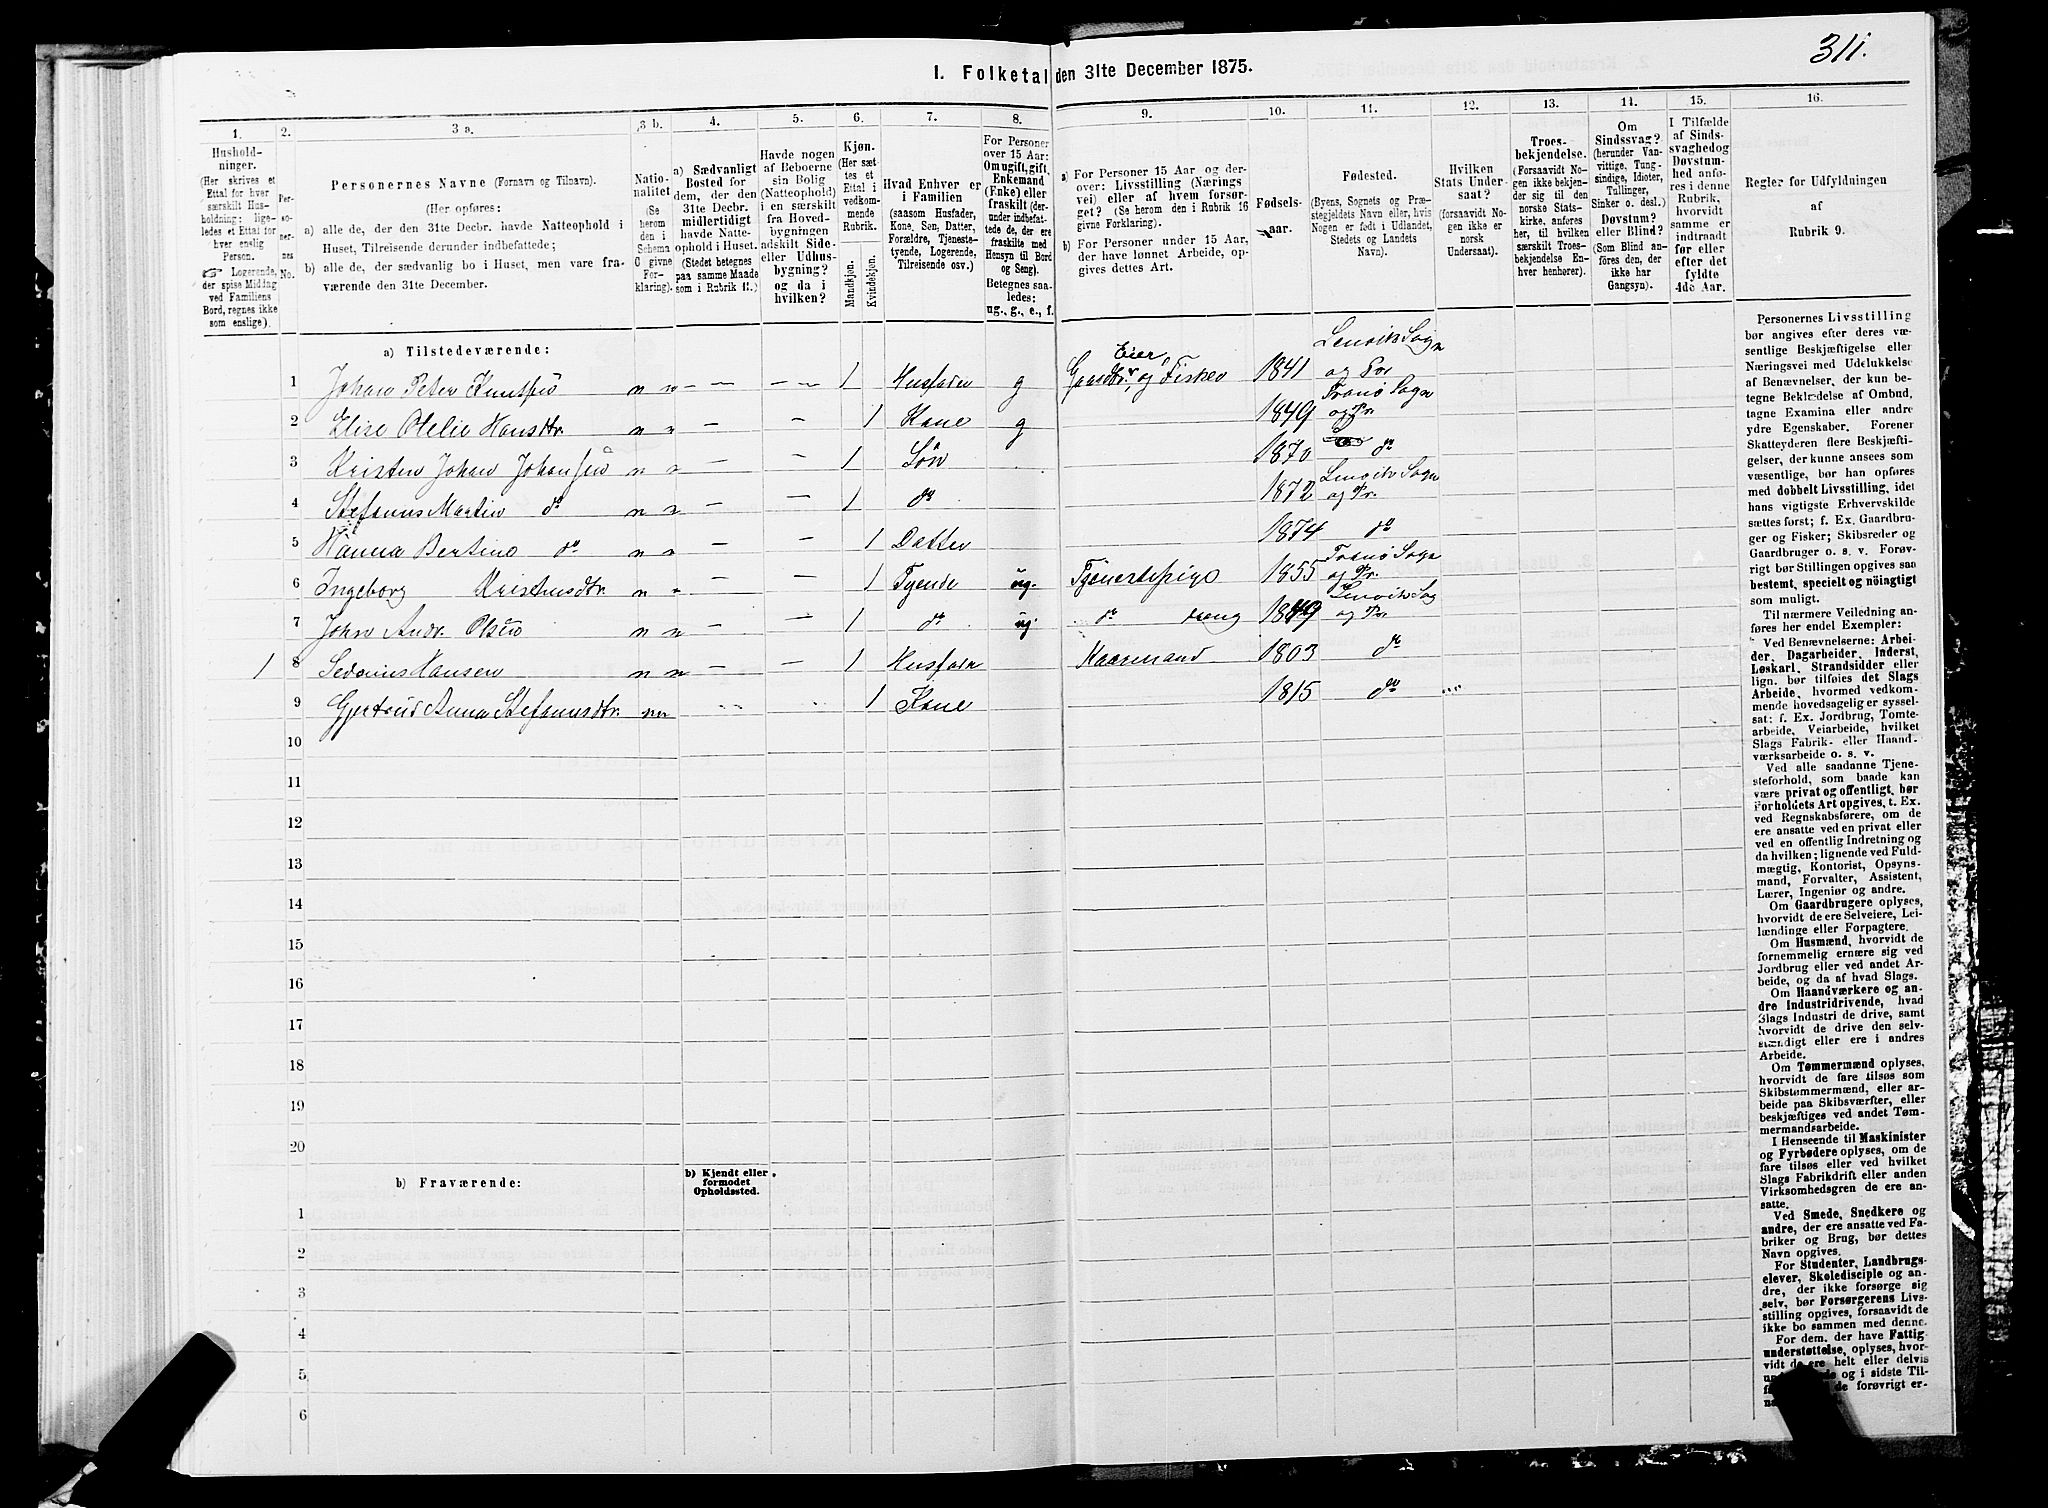 311.
I. Folketal den 31te December 1875.
1. 2. 3 a. 3 b. 4. 5. 6. 7. 8. 9. 10. 11. 12. 13. 14. 15. 16.
Husholdninger.
(Her skrives et
Ettal for hver
særskilt Husholdning;
ligeledes et Ettal for
hver enslig
Person.
☞ Logerende,
der spise Middag
ved Familiens
Bord, regnes ikke
som enslige).
Personernes
No.
Personernes Navne (Fornavn og Tilnavn).
(Her opføres:
a) alle de, der den 31te Decbr. havde Natteophold i
Huset, Tilreisende derunder indbefattede;
b) alle de, der sædvanlig bo i Huset, men vare fraværende
den 31te December.
Nationalitet
(Se
herom
den i
Schema
C givne
Forklaring).
a) Sædvanligt
Bosted for
dem, der den
31te Decbr.
midlertidigt
havde Natteophold
i Huset.
(Stedet betegnes
paa samme Maade
som i Rubrik 11.)
Havde nogen
af Beboerne
sin Bolig
(Natteophold)
i en særskilt
fra Hovedbygningen
adskilt Side-
eller Udhusbygning?
og da i
hvilken?
Kjøn.
(Her sættes
et
Ettal i
vedkommende
Rubrik.
Mandkjøn.
Kvindekjøn.
Hvad Enhver er
i Familien
(saasom Husfader,
Kone, Søn, Datter,
Forældre, Tjenestetyende,
Logerende,
Tilreisende osv.)
For Personer
over 15 Aar:
Om ugift, gift,
Enkemand
(Enke) eller
fraskilt (derunder
indbefattede
de, der ere
fraskilte med
Hensyn til Bord
og Seng).
Betegnes saaledes:
ug., g., e., f.
a) For Personer 15 Aar og derover:
Livsstilling (Nærings
vei) eller af hvem forsørget?
(Se herom de i Rubrik 16
givne Forklaring).
b) For Personer under 15 Aar,
der have lønnet Arbeide, opgives
dettes Art.
Fødselsaar.
Fødested.
(Byens, Sognets og Præstegjeldets
Navn eller, hvis
Nogen er født i Udlandet,
Stedets og Landets
Navn).
Hvilken
Stats Undersaat?
(forsaavidt Nogen
ikke er
norsk
Undersaat).
Troesbekjendelse.
(Forsaavidt Nogen
ikke bekjender
sig til den
norske Statskirke,
anføres
her, til hvilken
særskilt Troesbekjendelse
Enhver
henhører).
Om
Sindssvag?
(herunder Vanvittige,
Tungsindige,
Idioter,
Tullinger,
Sinker o. desl.)
Døvstum?
eller Blind?
(Som Blind anføres
den, der
ikke har
Gangsyn).
I Tilfælde
af Sindssvaghed og
Døvstumhed
anføres
i denne
Rubrik,
hvorvidt
samme er
indtraadt
før eller
efter det
fyldte
4de Aar.
Regler for Udfyldningen
af
Rubrik 9.
a) Tilstedeværende:
1 Johan Peter Knutsen n n — — — — 1 Husfader g Gaardbr. Eier og Fisker 1841 Lenviks Sogn og Pr
2 Elise Olelie Hansdtr. n n — — 1 Kone g 1849 Tranø Sogn og Pr.
3 Kristen Johan Johansen n n — — 1 Søn 1870 do
4 Stefanus Martin do n n — — 1 do 1872 Lenvik Sogn og Pr.
5 Hanna Bertine do n n — — 1 Datter 1874 do
6 Ingeborg Kristensdtr. n n — — 1 Tyende ug. Tjenestepige 1855 Tranø Sogn og Pr.
7 John Andr. Olsen n n — — 1 do ug. do dreng 1849 Lenvik Sog og Pr
1 8 Hansen n n — — 1 Husfader Kaarmand 1803 do
9 Gjertrud Anna Stefanusdtr. n n 1 Kone 1815 do
10
11
12
13
14
15
16
17
18
19
20
b) Fraværende:
b) Kjendt eller
formodet
Opholdssted.
1
2
3
4
5
6
Personernes Livsstilling
bør angives efter deres væsentlige
Beskjæftigelse eller
Næringsvei med Udelukkelse
af Benævnelser, der kun betegne
Beklædelse af Ombud,
tagne Examina eller andre
ydre Egenskaber. Forener
Skatteyderen flere Beskjæftigelser,
der kunne ansees som
væsentlige, bør han opføres
med dobbelt Livsstilling, idet
hans vigtigste Erhvervskilde
sættes først; f. Ex. Gaardbruger
og Fisker; Skibsreder og
Gaardbruger o. s. v. Forøvrigt
bør Stillingen opgives saa
bestemt, specielt og nøiagtigt
som muligt.
Til nærmere Veiledning anføres
her endel Exempler:
Ved Benævnelserne: Arbeider,
Dagarbeider, Inderst,
Løskarl, Strandsidder eller
lign. bør tilføies det Slags
Arbeide, hvormed vedkommende
hovedsagelig er sysselsat:
f. Ex. Jordbrug, Tomtearbeide,
Veiarbeide, hvilket
Slags Fabrik- eller Haandværksarbeide
o. s. v.
Ved alle saadanne Tjenesteforhold,
som baade kan
være privat og offentligt, bør
Forholdets Art opgives, t. Ex.
ved Regnskabsførere, om de
ere ansatte ved en privat eller
ved en offentlig Indretning og
da hvilken; lignende ved Fuldmægtig,
Kontorist, Opsynsmand,
Forvalter, Assistent,
Lærer, Ingeniør og andre.
Om Gaardbrugere oplyses,
hvorvidt de ere Selveiere, Leilændinge
eller Forpagtere.
Om Husmænd, hvorvidt de
fornemmelig ernære sig ved
Jordbrug eller ved andet Arbeide,
og da af hvad Slags.
Om Haandværkere og andre
Industridrivende, hvad
Slags Industri de drive, samt
hvorvidt de drive den selvstændigt
eller ere i andres
Arbeide.
Om Tømmermænd oplyses,
hvorvidt de fare tilsøs som
Skibstømmermænd, eller arbeide
paa Skibsværfter, eller
beskjæftiges ved andet Tømmermandsarbeide.
I Henseende til Maskinister
og Fyrbødere oplyses, om de
fare tilsøs eller ved hvilket
Slags Fabrikdrift eller anden
Virksomhedsgren de ere ansatte.
Ved Smede, Snedkere og
andre, der ere ansatte ved Fabriker
og Brug, bør dettes
Navn opgives.
For Studenter, Landbrugselever,
Skoledisciple og andre,
der ikke forsørge sig
selv, bør Forsørgerens Livsstilling
opgives, forsaavidt de
ikke bo sammen med denne.
For dem, der have Fattigunderstøttelse,
oplyses, hvorvidt
de ere helt eller delvis
og i sidste Tilde
forøvrigt er-